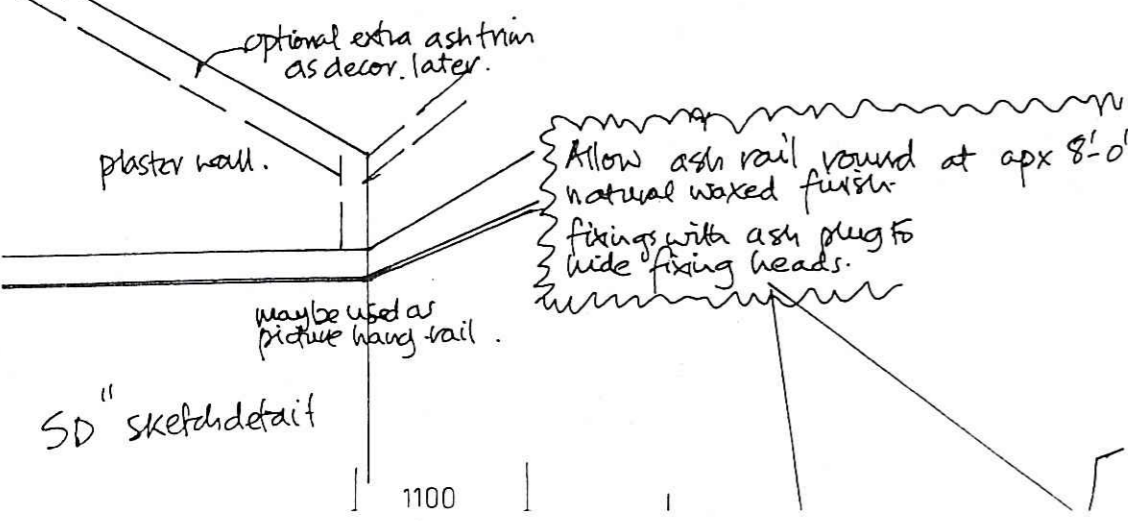 optional extra ash trim
as decor. later.
plaster wall.
Allow ash rail round at apx 8'-0'
natural waxed finish.
fixings with ash plug to
hide fixing heads.
maybe used as
picture hang-rail.
SD" sketch detail
1100